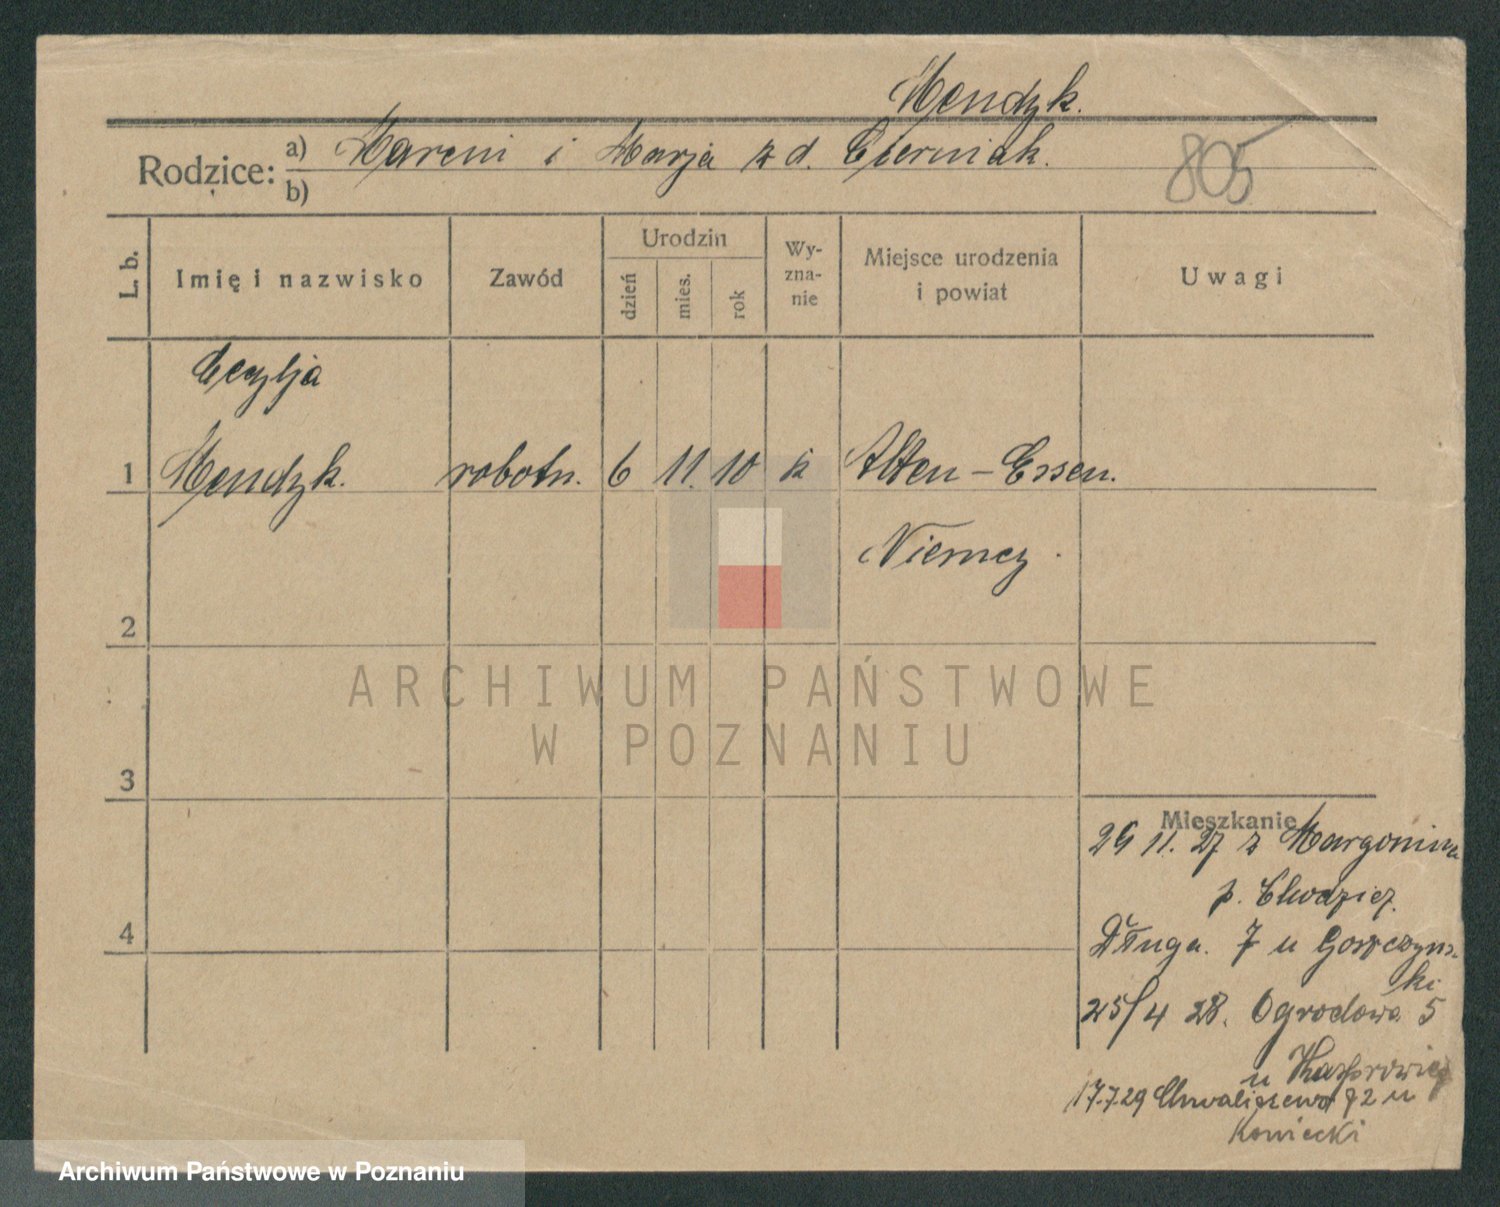 Mendyk.
Rodzice: a) Marcin i Marja z d. Cierniak.
b)
805
L. b.
Imię i nazwisko
Zawód
Urodzin
dzień
mies.
rok
Wy-
zna-
nie
Miejsce urodzenia
i powiat
Uwagi
Cecylja
1 Mendyk. robotn. 6 11. 10 k Alten-Essen.
Niemcy.
2
ARCHIWUM PAŃSTWOWE
W POZNANIU
3
Mieszkanie
29 11. 27 z Margonina
p. Chodzież.
4
Długa. 7 u Goszczyńs-
ki
25/4 28. Ogrodowa 5
u Kasprowicz
17.7.29 Chwaliszewo 72 u
Koniecki
Archiwum Państwowe w Poznaniu